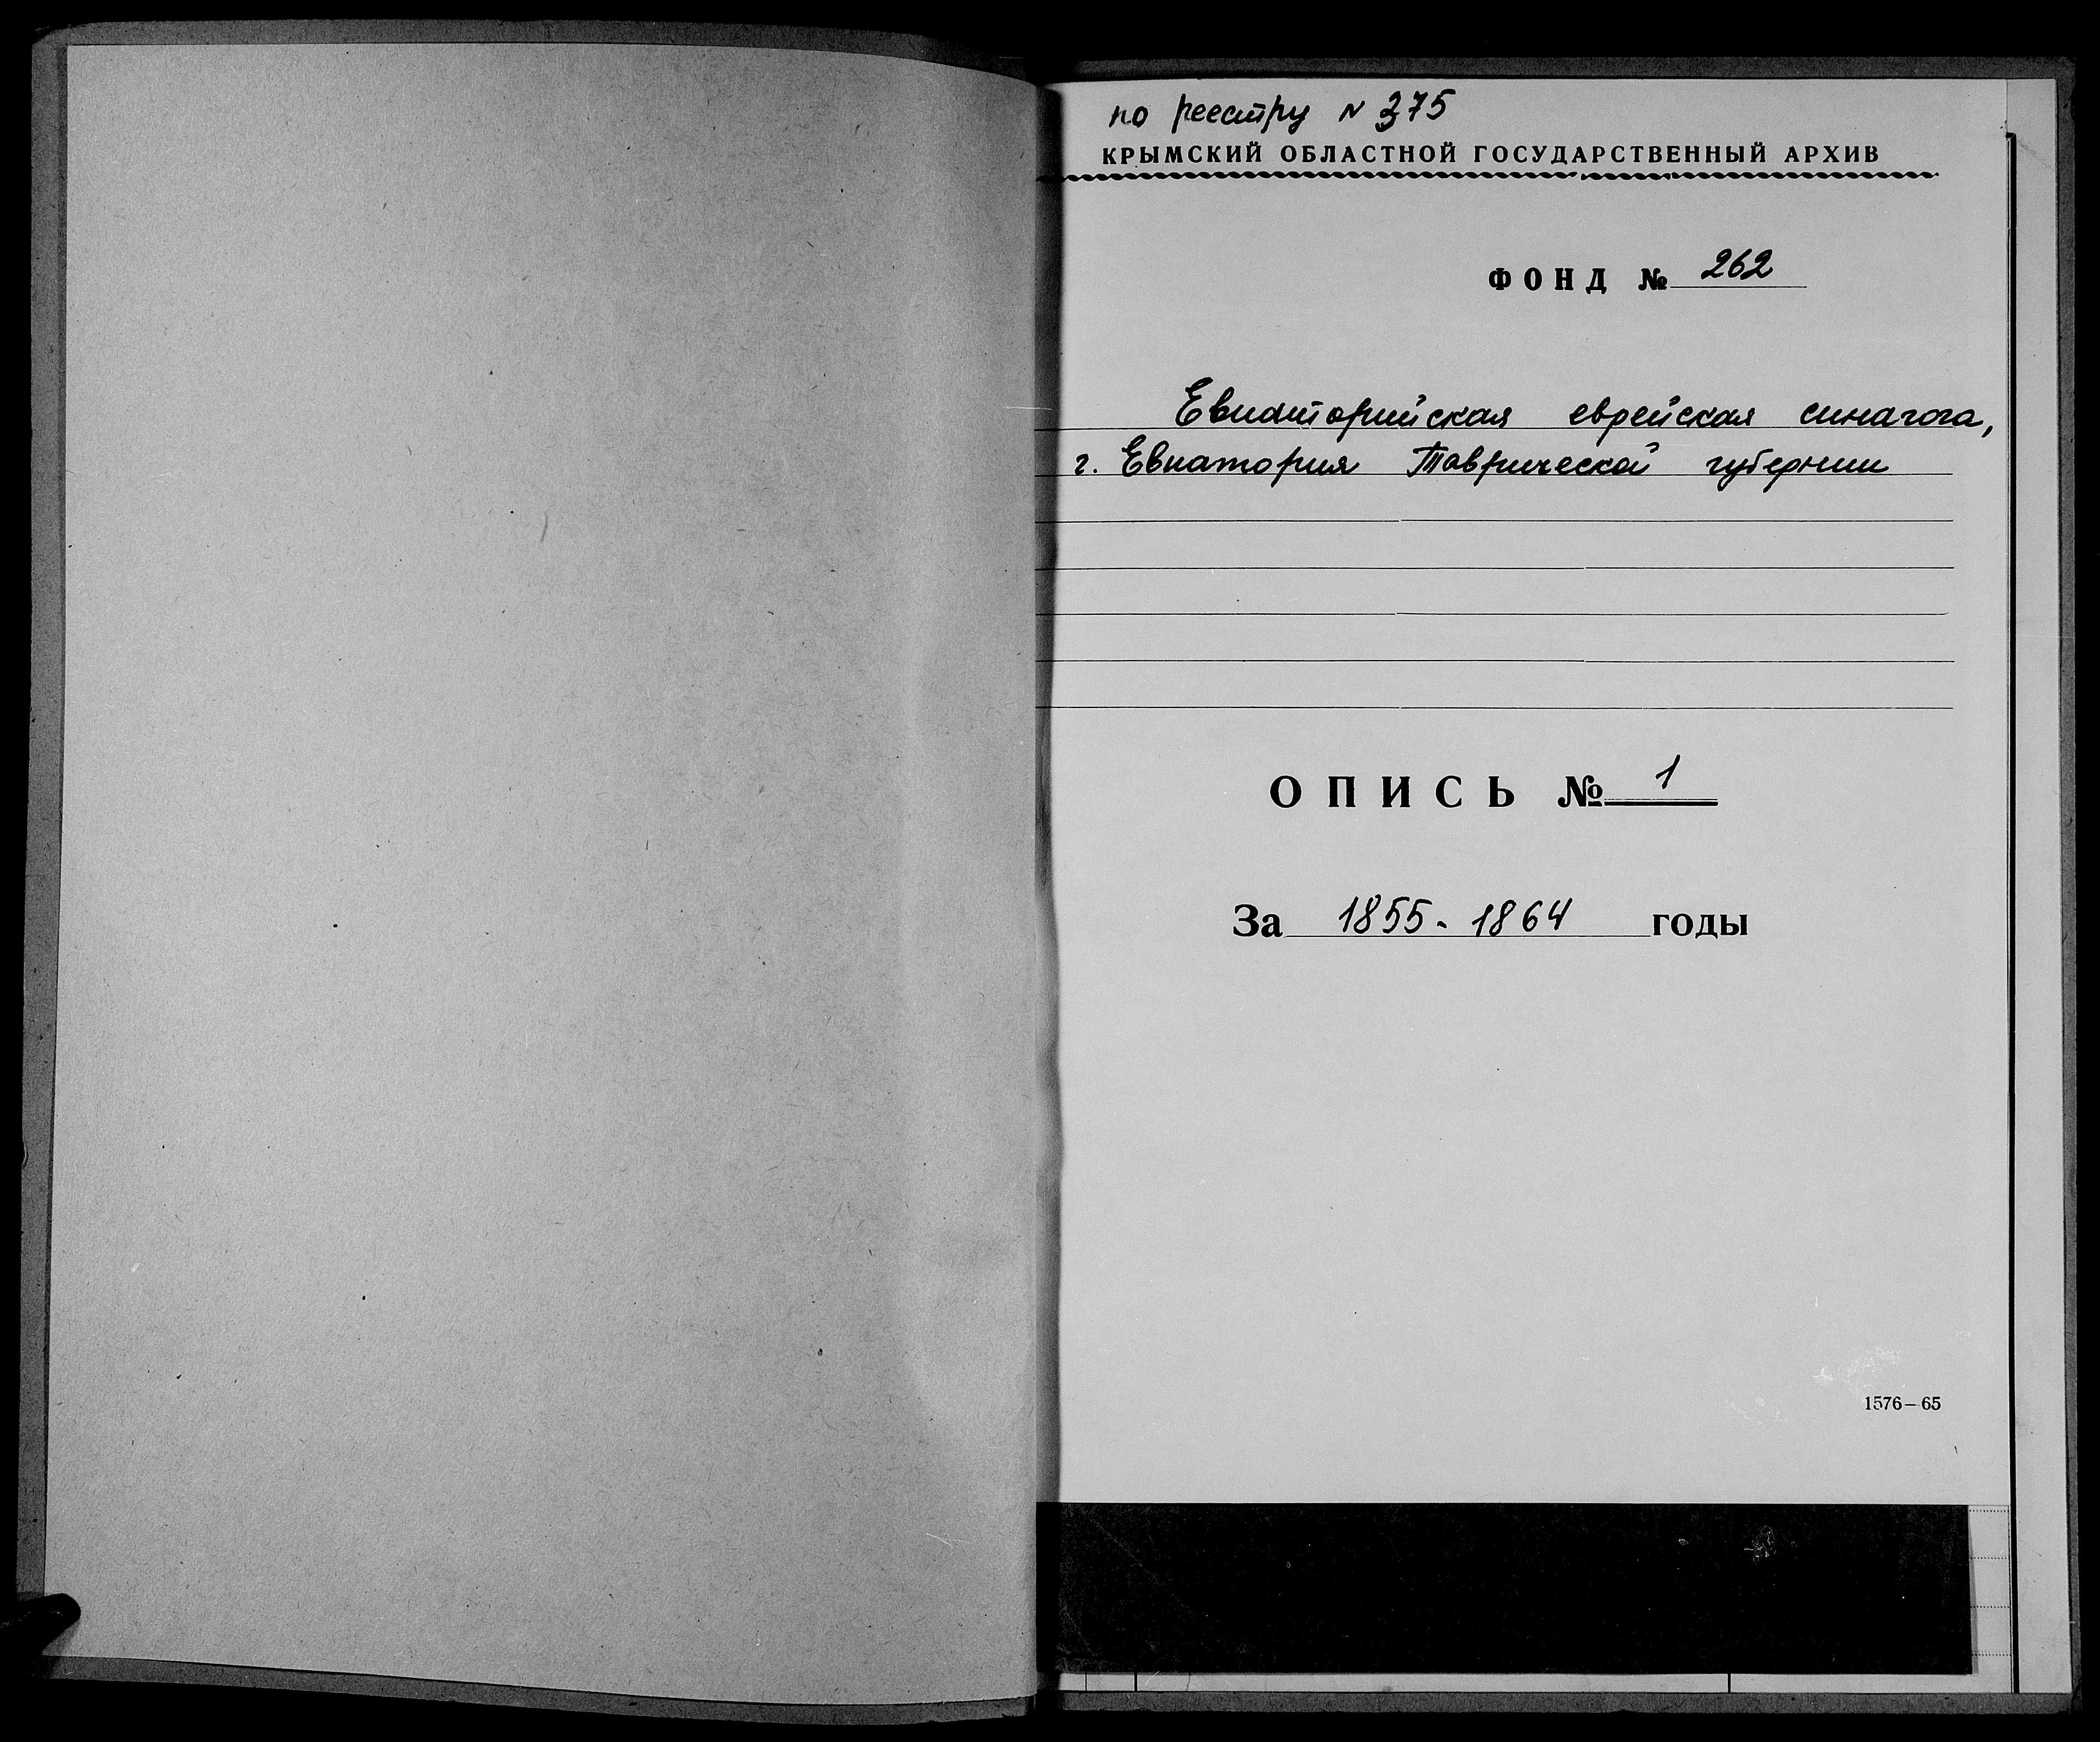 по реестру N 375
КРЫМСКИЙ ОБЛАСТНОЙ ГОСУДАРСТВЕННЫЙ АРХИВ
ФОНД № 262
Евпаторийская еврейская синагога,
г. Евпатория Таврической губернии
ОПИСЬ № 1
За 1855-1864 годы
1576—65